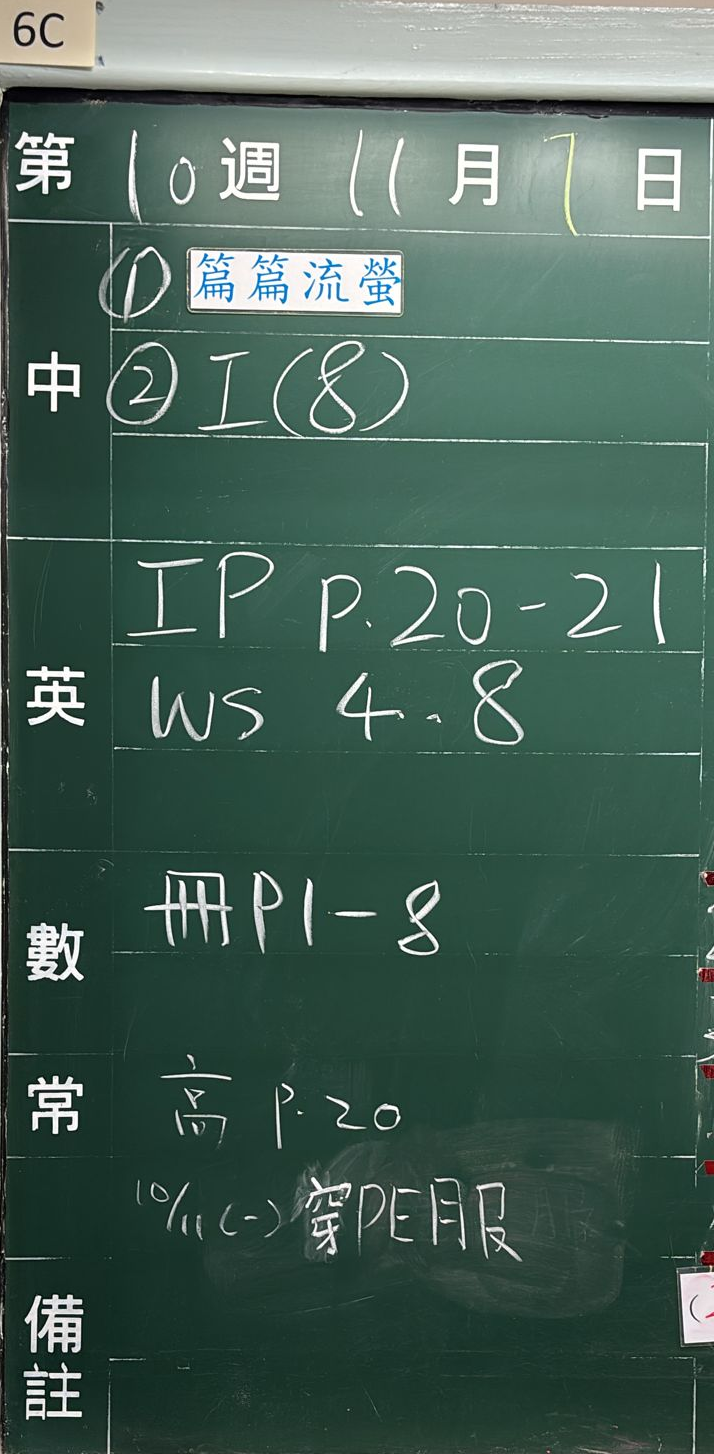 6C
第 10 週 11 月 7 日
中
① 篇篇流螢
② I(8)
英
IP P.20-21
WS 4.8
數
冊P1-8
常
高 P.20
10/11(一) 穿PE服
備註